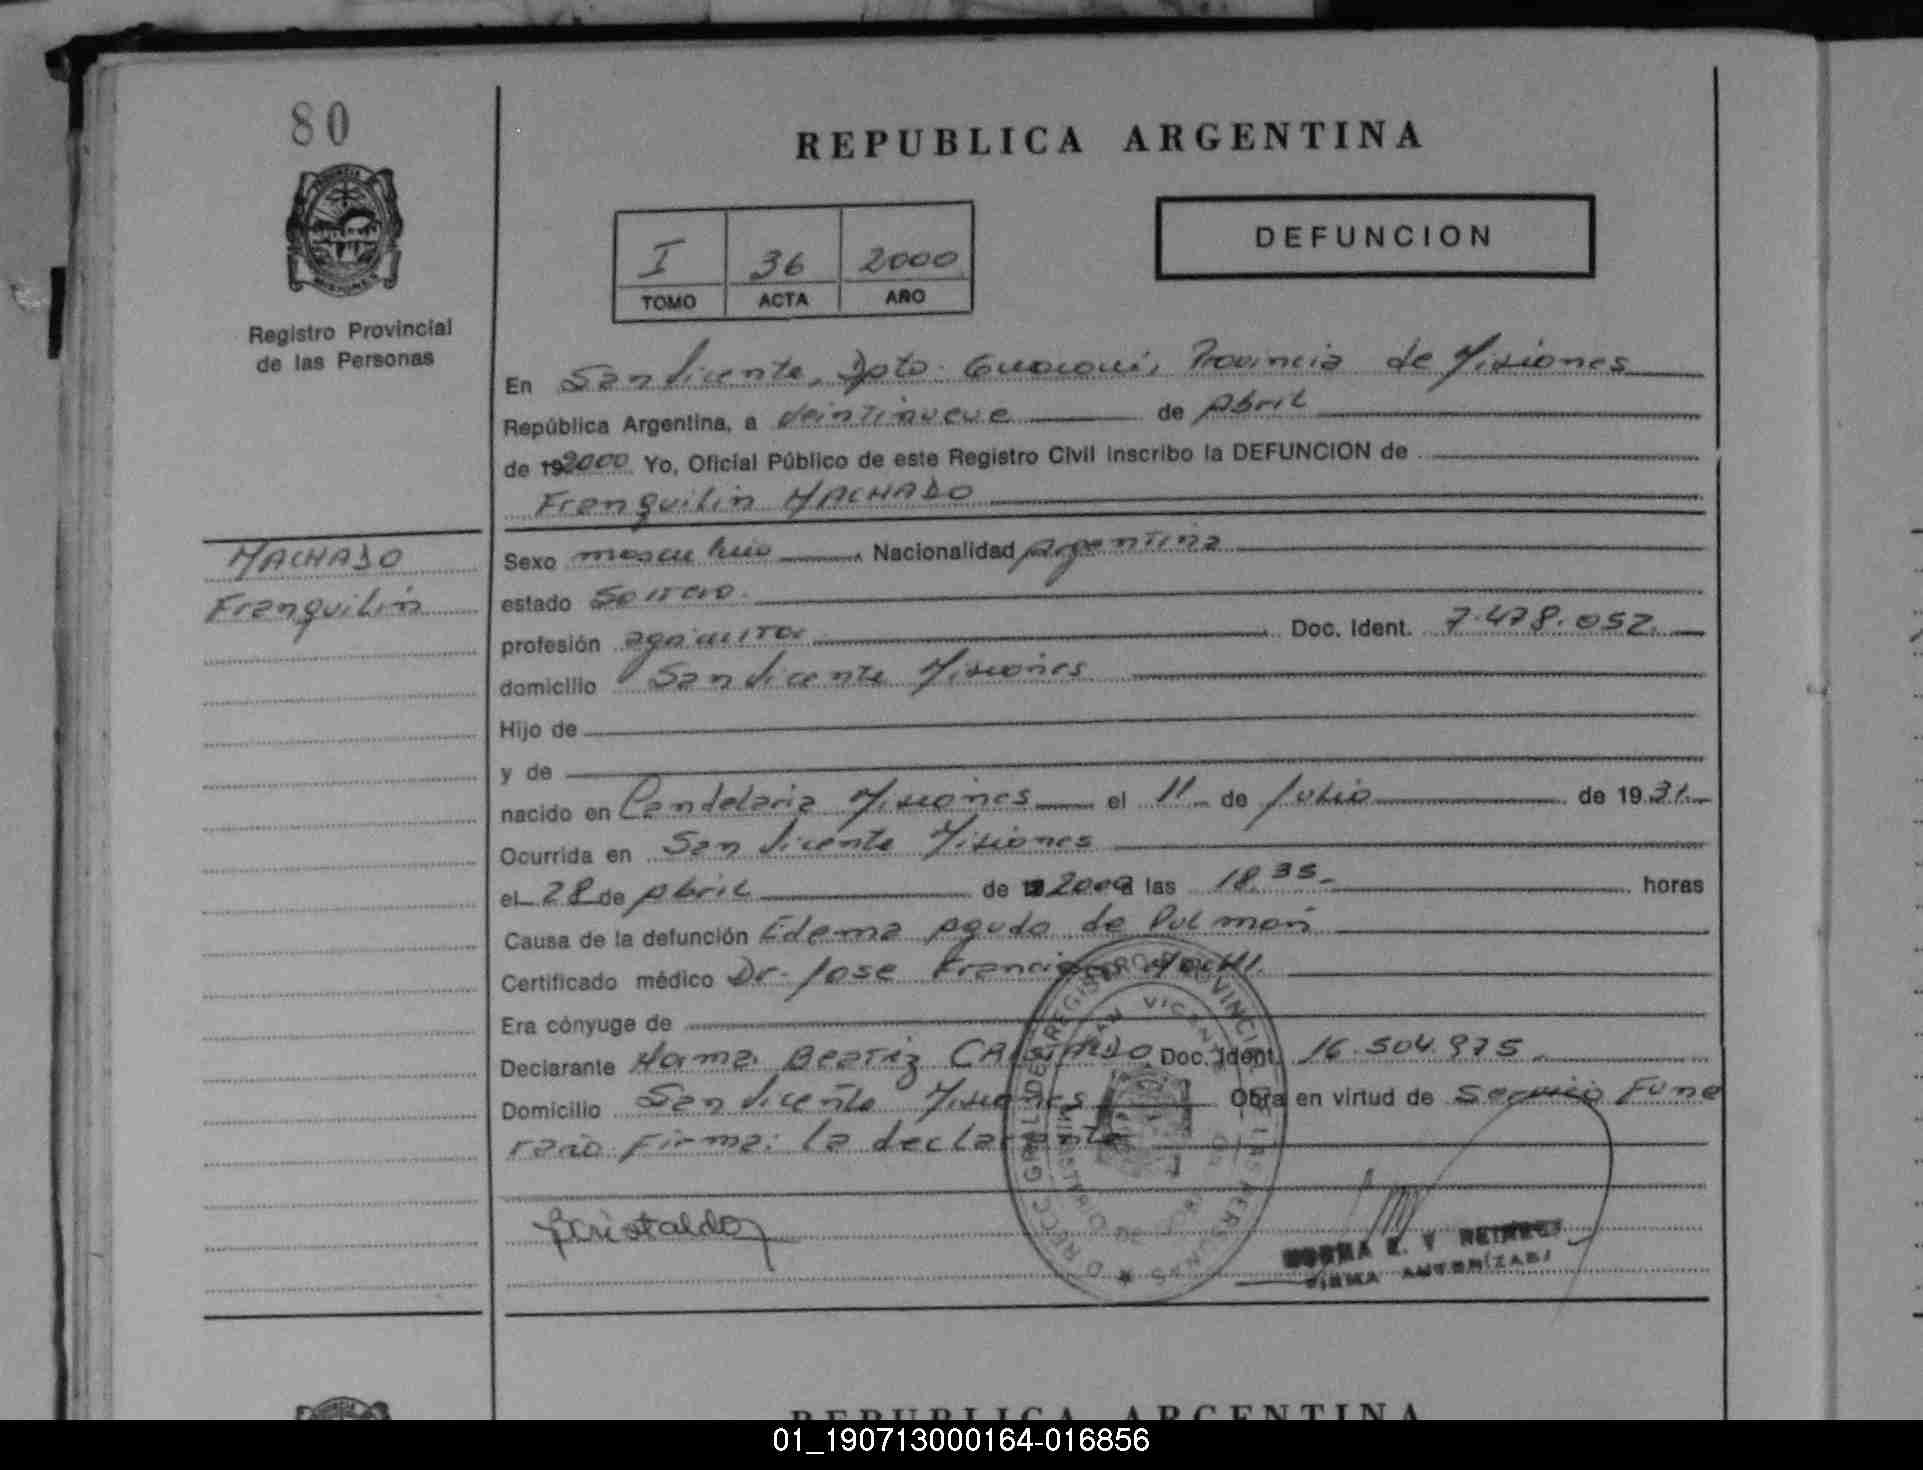 80
REPUBLICA ARGENTINA
I 36 2000
TOMO ACTA AÑO
DEFUNCION
Registro Provincial
de las Personas
En San Vicente, Dpto. Guaraní, Provincia de Misiones
República Argentina, a veintinueve de Abril
de 192000 Yo, Oficial Público de este Registro Civil inscribo la DEFUNCION de
Franquilin MACHADO
MACHADO
Franquilin
Sexo masculino, Nacionalidad Argentina
estado Soltero.
profesión agricultor Doc. Ident. 7.478.052.
domicilio San Vicente Misiones
Hijo de
y de
nacido en Candelaria Misiones el 11 de Julio de 1931
Ocurrida en San Vicente Misiones
el 28 de Abril de 2000 a las 18.35 horas
Causa de la defunción Edema Agudo de Pulmon
Certificado médico Dr. Jose Francisco
Era cónyuge de
Declarante Norma Beatriz CRISTALDO Doc. Ident. 16.504.975.
Domicilio San Vicente Misiones Obra en virtud de Servicio Fune
rario. Firma: la declarante
Cristaldo
FIRMA AUTORIZADA
REPUBLICA ARGENTINA
01_190713000164-016856